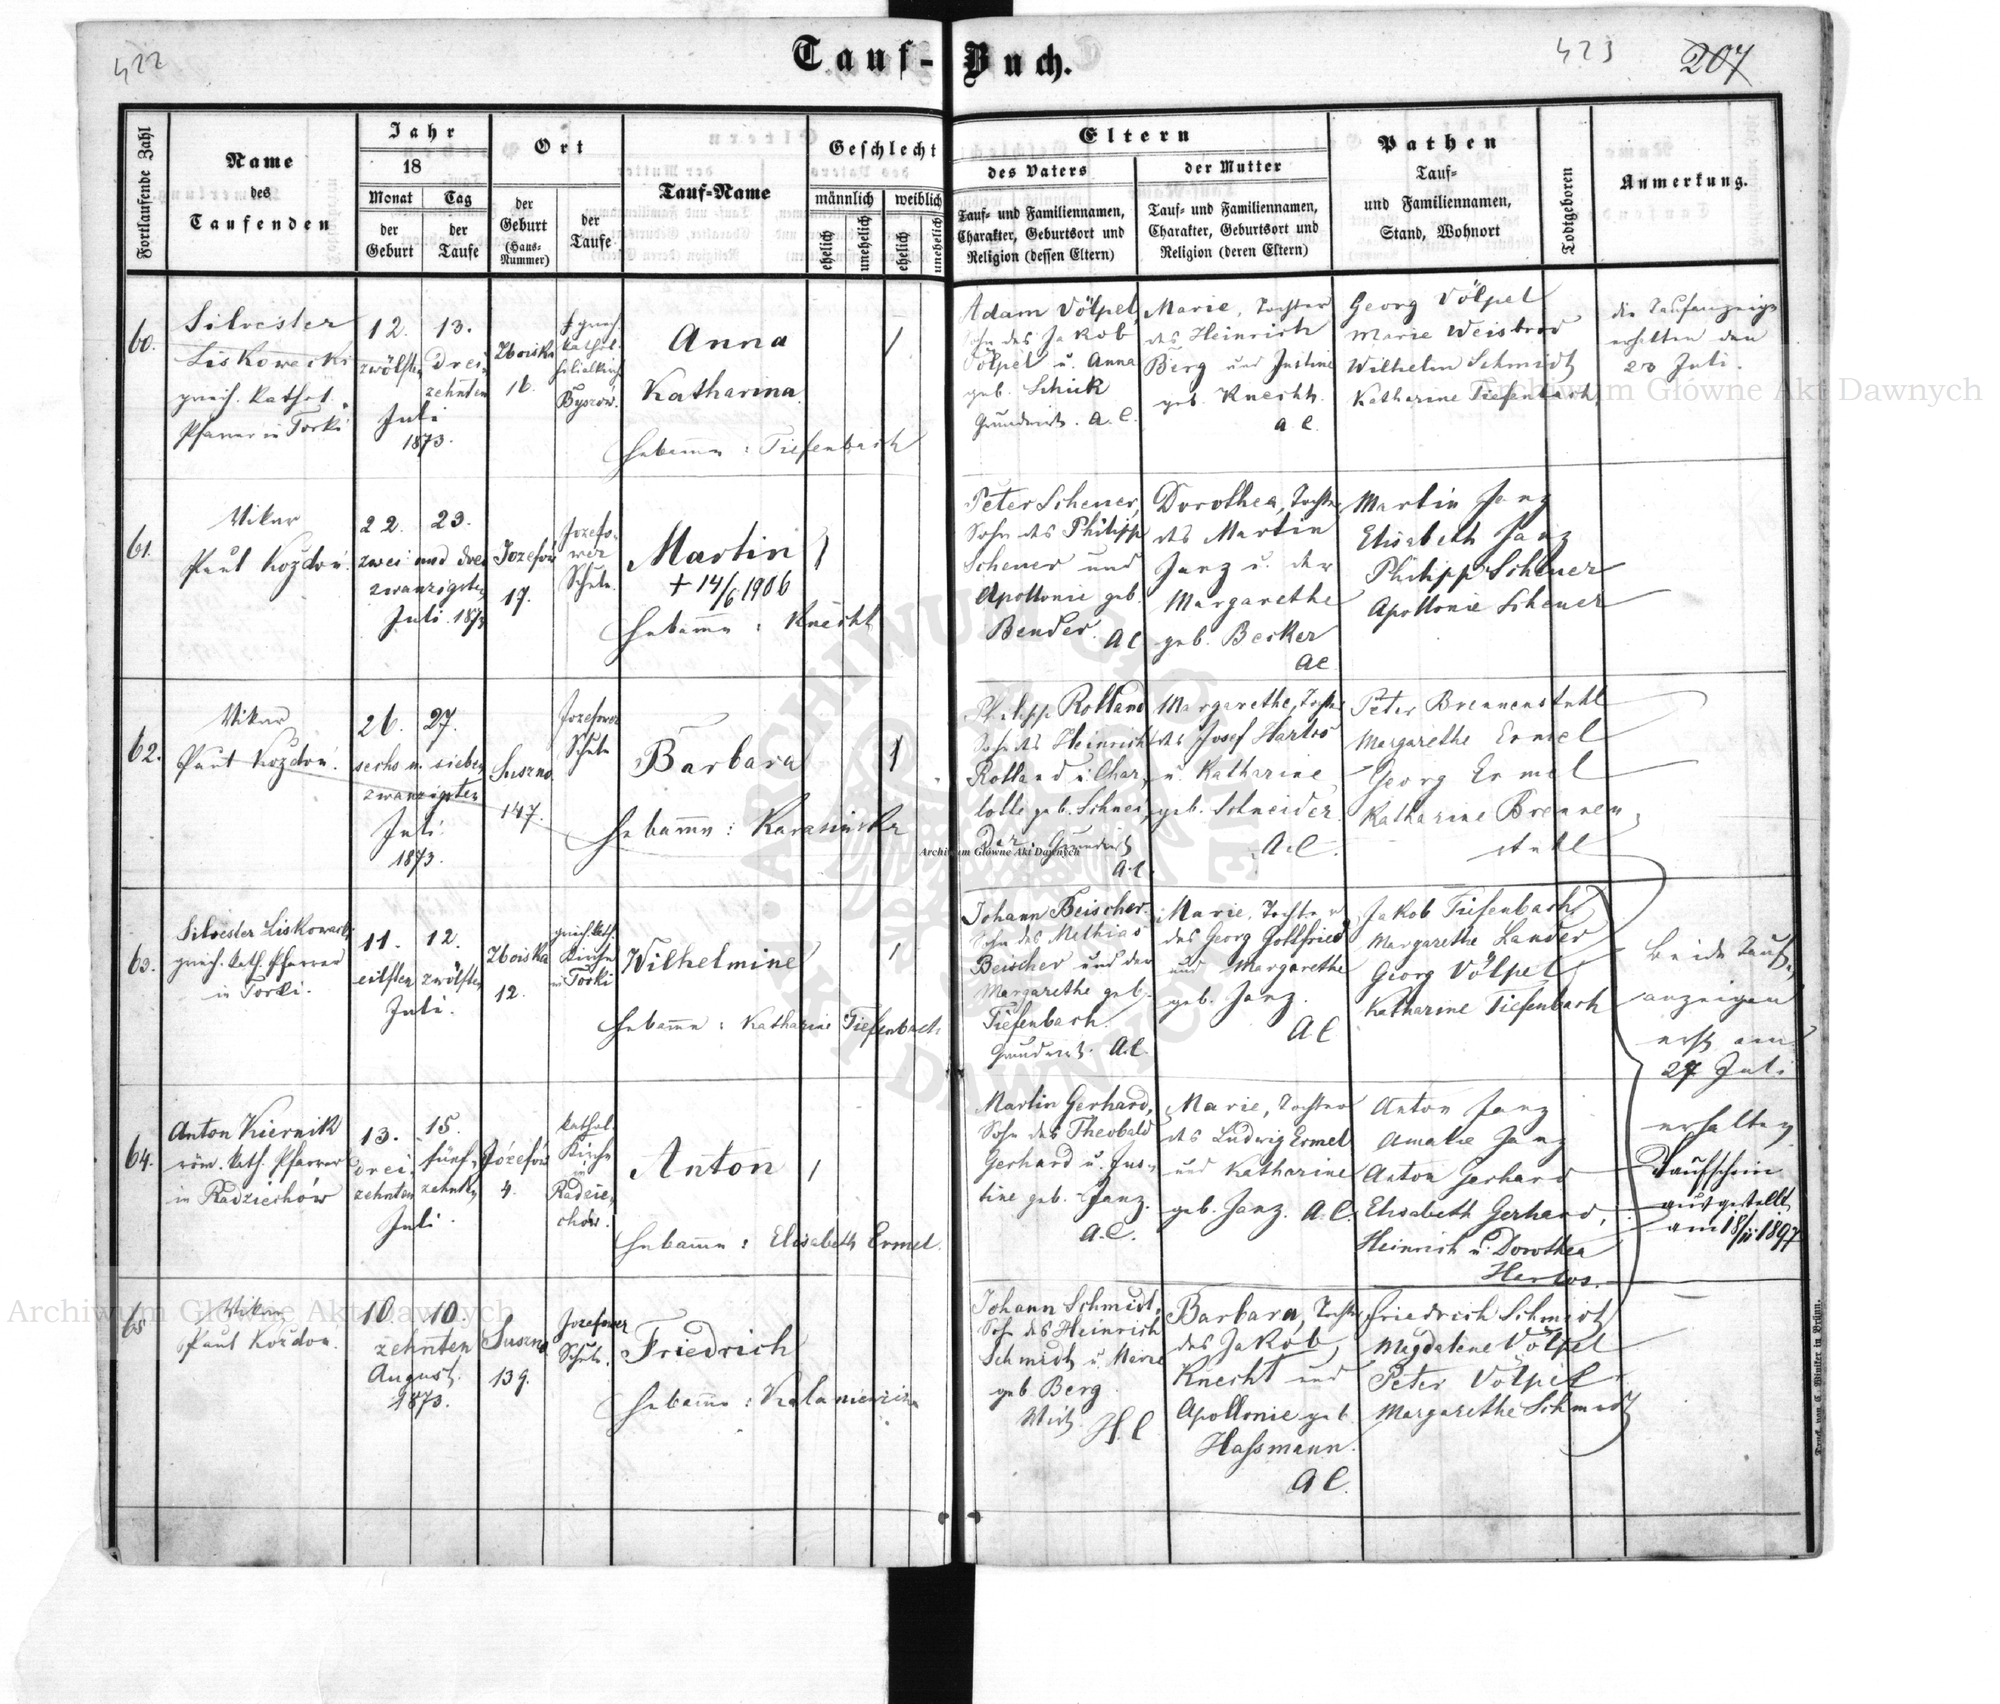 422
Tauf-Buch.
423
207
Fortlaufende Zahl
Name
des
Taufenden
Jahr
18
Monat
Tag
der
Geburt
der
Taufe
Ort
der
Geburt
(Haus-
Nummer)
der
Taufe
Tauf-Name
Geschlecht
männlich
weiblich
ehelich
unehelich
ehelich
unehelich
Eltern
des Vaters
Tauf- und Familiennamen,
Charakter, Geburtsort und
Religion (dessen Eltern)
der Mutter
Tauf- und Familiennamen,
Charakter, Geburtsort und
Religion (deren Eltern)
Pathen
Tauf-
und Familiennamen,
Stand, Wohnort
Todtgeboren
Anmerkung.
60.
Silvester
Liskowacki
griech. kathol.
Pfarrer in Torki
12. 13.
zwölften drei-
zehnten
Juli
1873.
Zboiska
16.
griech.
kathol.
Filialkirche
Byszów.
Anna
Katharina
Hebamme: Tiefenbach
1
Adam Völpel,
Sohn des Jakob
Völpel u. Anna
geb. Schick
Grundwirt. A.C.
Marie, Tochter
des Heinrich
Berg und Justine
geb. Knecht.
A.C.
Georg Völpel
Marie Weisbrod
Wilhelm Schmidt
Katharine Tiefenbach
die Taufanzeige
erhalten den
23 Juli.
61.
Vikar
Paul Kozdoń.
22. 23.
zwei und drei
zwanzigsten
Juli. 1873
Jozefów
17.
Jozefo-
wer
Schule.
Martin
+ 14/6 1906
Hebamme: Knecht
1
Peter Scheuer,
Sohn des Philipp
Scheuer und
Apollonie geb.
Bender. A C
Dorothea, Tochter
des Martin
Janz u. der
Margarethe
geb. Becker
AC
Martin Janz
Elisabeth Janz
Philipp Scheuer
Apollonie Scheuer
62.
Vikar
Paul Kozdoń.
26. 27.
sechs u. sieben
zwanzigsten
Juli.
1873.
Suszno
147.
Jozefower
Schule
Barbara
Hebamme: Karasińska
1
Philipp Rolland
Sohn des Heinrich
Rolland u. Char-
lotte geb. Schnei-
der. Grundwirt
A.C.
Margarethe, Tochter
des Josef Harlos
u. Katharine
geb. Schneider.
A.C.
Peter Brennenstuhl
Margarethe Ermel
Georg Ermel
Katharine Brennen-
stuhl
63.
Silvester Liskowacki
griech. kath. Pfarrer
in Torki.
11. 12.
eilften zwölften
Juli.
Zboiska
12.
griech. kath.
Kirche
in Torki
Wilhelmine
Hebamme: Katharine Tiefenbach
1
Johann Beischer.
Sohn des Mathias
Beischer und der
Margarethe geb.
Tiefenbach.
Grundwirt. A.C.
Marie, Tochter
des Georg Gottfried
und Margarethe
geb. Janz.
A.C
Jakob Tiefenbach
Margarethe Lander
Georg Völpel
Katharine Tiefenbach
Beide Tauf-
anzeigen
erst am
27 Juli
erhalten
64.
Anton Kiernik
röm. kath. Pfarrer
in Radziechów
13. 15.
drei- fünf-
zehnten zehnten
Juli.
Józefów
4.
kathol.
Kirche
in
Radzie-
chów.
Anton
Hebamme: Elisabeth Ermel.
1
Martin Gerhard,
Sohn des Theobald
Gerhard u. Jus-
tine geb. Janz.
A.C.
Marie, Tochter
des Ludwig Ermel
und Katharine
geb. Janz. A.C.
Anton Janz
Amalie Janz
Anton Gerhard
Elisabeth Gerhard,
Heinrich u. Dorothea
Harlos.
Taufschein
ausgestellt
am 18/II 1897
65
Vikar
Paul Kozdon.
10 10
zehnten
August.
1873.
Suszno
139.
Jozefower
Schule.
Friedrich
Hebamme:
Johann Schmidt,
Sohn des Heinrich
Schmidt u. Marie
geb Berg
Wirt. H.C
Barbara, Tochter
des Jakob
Knecht und
Apollonie geb.
Hassmann.
A C.
Friedrich Schmidt
Magdalene Völpel
Peter Völpel
Margarethe Schmidt
Druck von C. Winiker in Brünn.
Archiwum Główne Akt Dawnych
Archiwum Główne Akt Dawnych
Archiwum Główne Akt Dawnych
ARCHIWUM GŁÓWNE AKT DAWNYCH